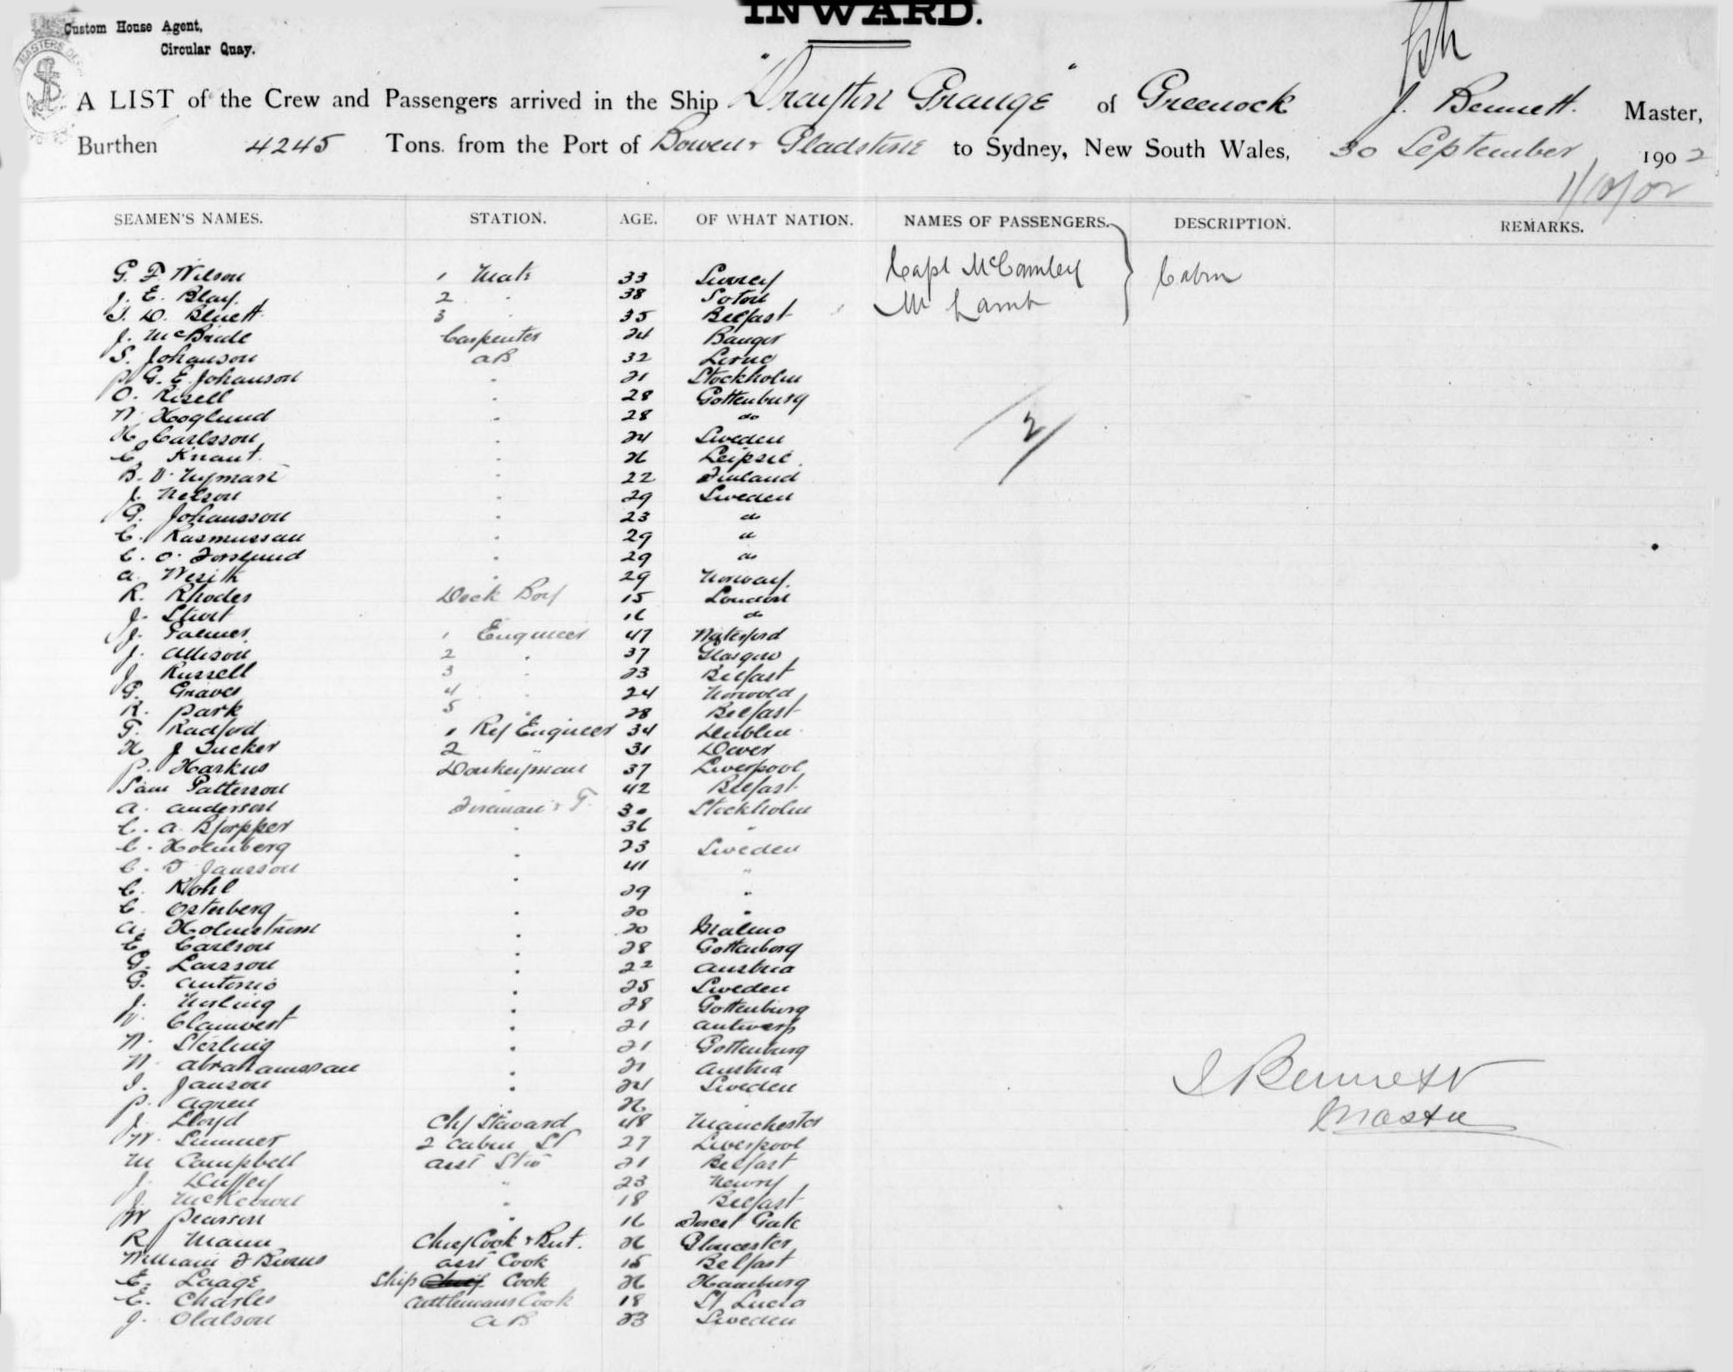 INWARD.
Custom House Agent,
Circular Quay.
A LIST of the Crew and Passengers arrived in the Ship "Drayton Grange" of Greenock J. Bennett. Master,
Burthen 4245 Tons from the Port of Bowen & Gladstone to Sydney, New South Wales, 30 September 1902
1/10/02
SEAMEN'S NAMES. STATION. AGE. OF WHAT NATION. NAMES OF PASSENGERS. DESCRIPTION. REMARKS.
G. F. Wilson 1 Mate 33 Surrey Capt McCamley Cabin
J. E. Blay. 2 " 38 Soton Mr Lamb
3 " 35 Belfast
J. McBride Carpenter 24 Bangor
S. Johanson AB 32 
G. E. Johanson " 21 Stockholm
O. Risell " 28 Gottenburg
N. Hoglund " 28 do
H. Carlsson " 24 Sweden
C. Knaut. " 26 Leipsic.
B. V. Nyman " 22 Finland
J. Nelson " 29 Sweden
G. Johansson " 23 do
C. Rasmussan " 29 do
C. O. Forslund " 29 do
A. " 29 Norway.
R. Rhodes Deck Boy 15 London
J. 16 do
J. Palmer 1 Engineer 47 Waterford
J. Allison 2 " 37 Glasgow
J. Russell 3 " 23 Belfast
G. Graves 4 " 24 Norwood
R. Park 5 " 28 Belfast
G. Radford 1 Ref Engineer 34 Dublin
H J Tucker 2 " 31 Dover
P. Harkus Donkeyman 37 Liverpool
Sam Patterson " 42 Belfast
A. Anderson Fireman & T. 30 Stockholm
C. A. " 36 "
C. Holmberg " 23 Sweden
C. F. Jansson 41 "
C. Kohl " 29 "
C. Osterberg " 20 "
A. Holmstrom " 20 Malmo
E. Carlson " 28 Gottenborg
G. Larsson " 22 Austria
G. Antonio " 25 Sweden
J. " 28 Gottenburg
" 21 Antwerp
N. Sterling " 21 Gottenburg
N. Abrahamssan " 21 Austria
J. Janson " 24 Sweden
P. Agren 26 "
J. Lloyd Chf Steward 48 Manchester
W. Sumner 2 Cabin St 27 Liverpool
M Campbell asst Std 21 Belfast
J. Duffey " 23 Newry
J. McKeown " 18 Belfast
W Pearson " 16 Forest Gate
R. Mann Chief Cook & But. 26 Gloucester
William J Burns asst Cook 15 Belfast
E. Laage Ship Chief Cook 26 Hamburg
E. Charles Cattlemans Cook 18 St Lucia
J. Olalson AB 23 Sweden
2
J Bennett
Master